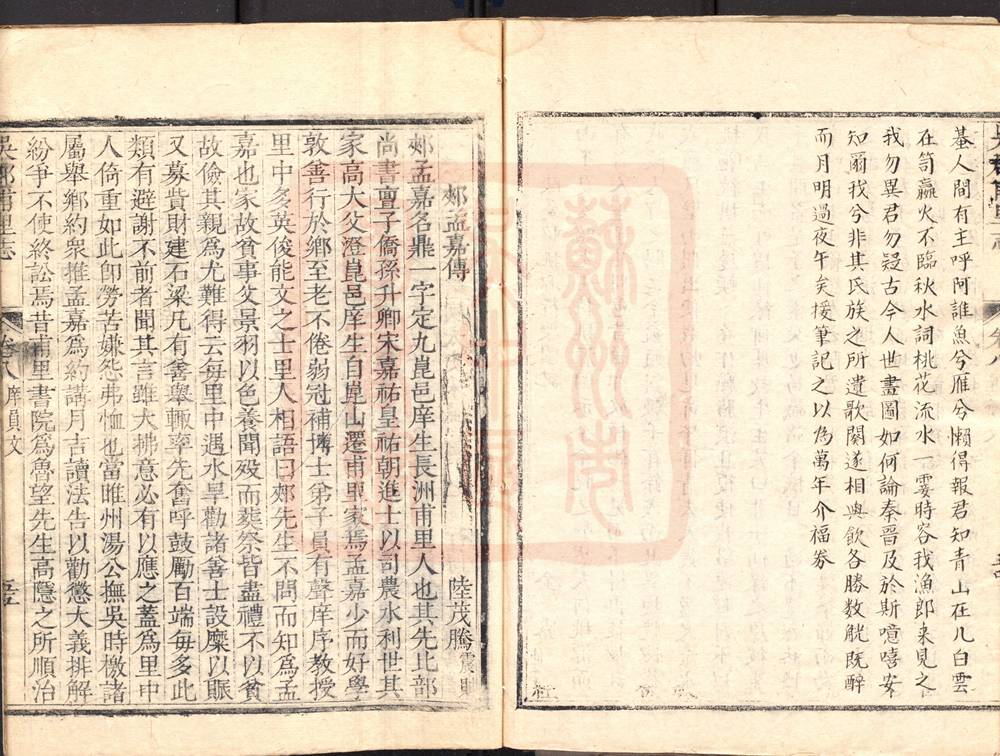 棊人間有主呼阿誰魚兮雁兮懶得報君知青山在几白雲
在笥贏火不臨秋水詞桃花流水一霎時容我漁郎來見之
我勿異君勿疑古今人世畫圖如何論秦晉及於斯噫嘻安
知爾我兮非其氏族之所遺歌闋遂相與飲各勝數觥既醉
而月明過夜午矣援筆記之以為萬年介福券
郟孟嘉傳
陸茂騰震則
郟孟嘉名鼎一字定九崑邑庠生長洲甫里人也其先比部
尚書亶子僑孫升卿宋嘉祐皇祐朝進士以司農水利世其
家高大父澄崑邑庠生自崑山遷甫里家焉孟嘉少而好學
敦善行於鄉至老不倦弱冠補博士弟子員有聲庠序教授
里中多英俊能文之士里人相語曰郟先生不問而知為孟
嘉也家故貧事父景羽以色養聞歿而葬祭皆盡禮不以貧
故儉其親為尤難得云每里中遇水旱勸諸善士設糜以賑
又募貲財建石梁凡有善舉輒率先奮呼鼓勵百端每多此
類有避謝不前者聞其言雖大拂意必有以應之蓋為里中
人倚重如此卽勞苦嫌怨弗恤也當睢州湯公撫吳時檄諸
屬舉鄉約衆推孟嘉為約講月吉讀法告以勸懲大義排解
紛爭不使終訟焉昔甫里書院為魯望先生高隱之所順治
吳郡甫里志
卷八
庠員文